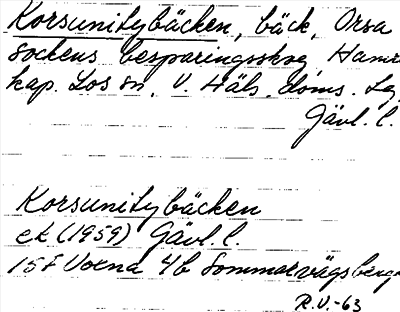 Korsunitybäcken, bäck, Orsa
sockens besparingsskog Hamra
kap. Los sn, V. Häls. doms. Lg,
Gävl. l.
Korsunitybäcken
ek (1959) Gävl. l.
15F Voxna 4b Sommarvägsberget
R.V.-63